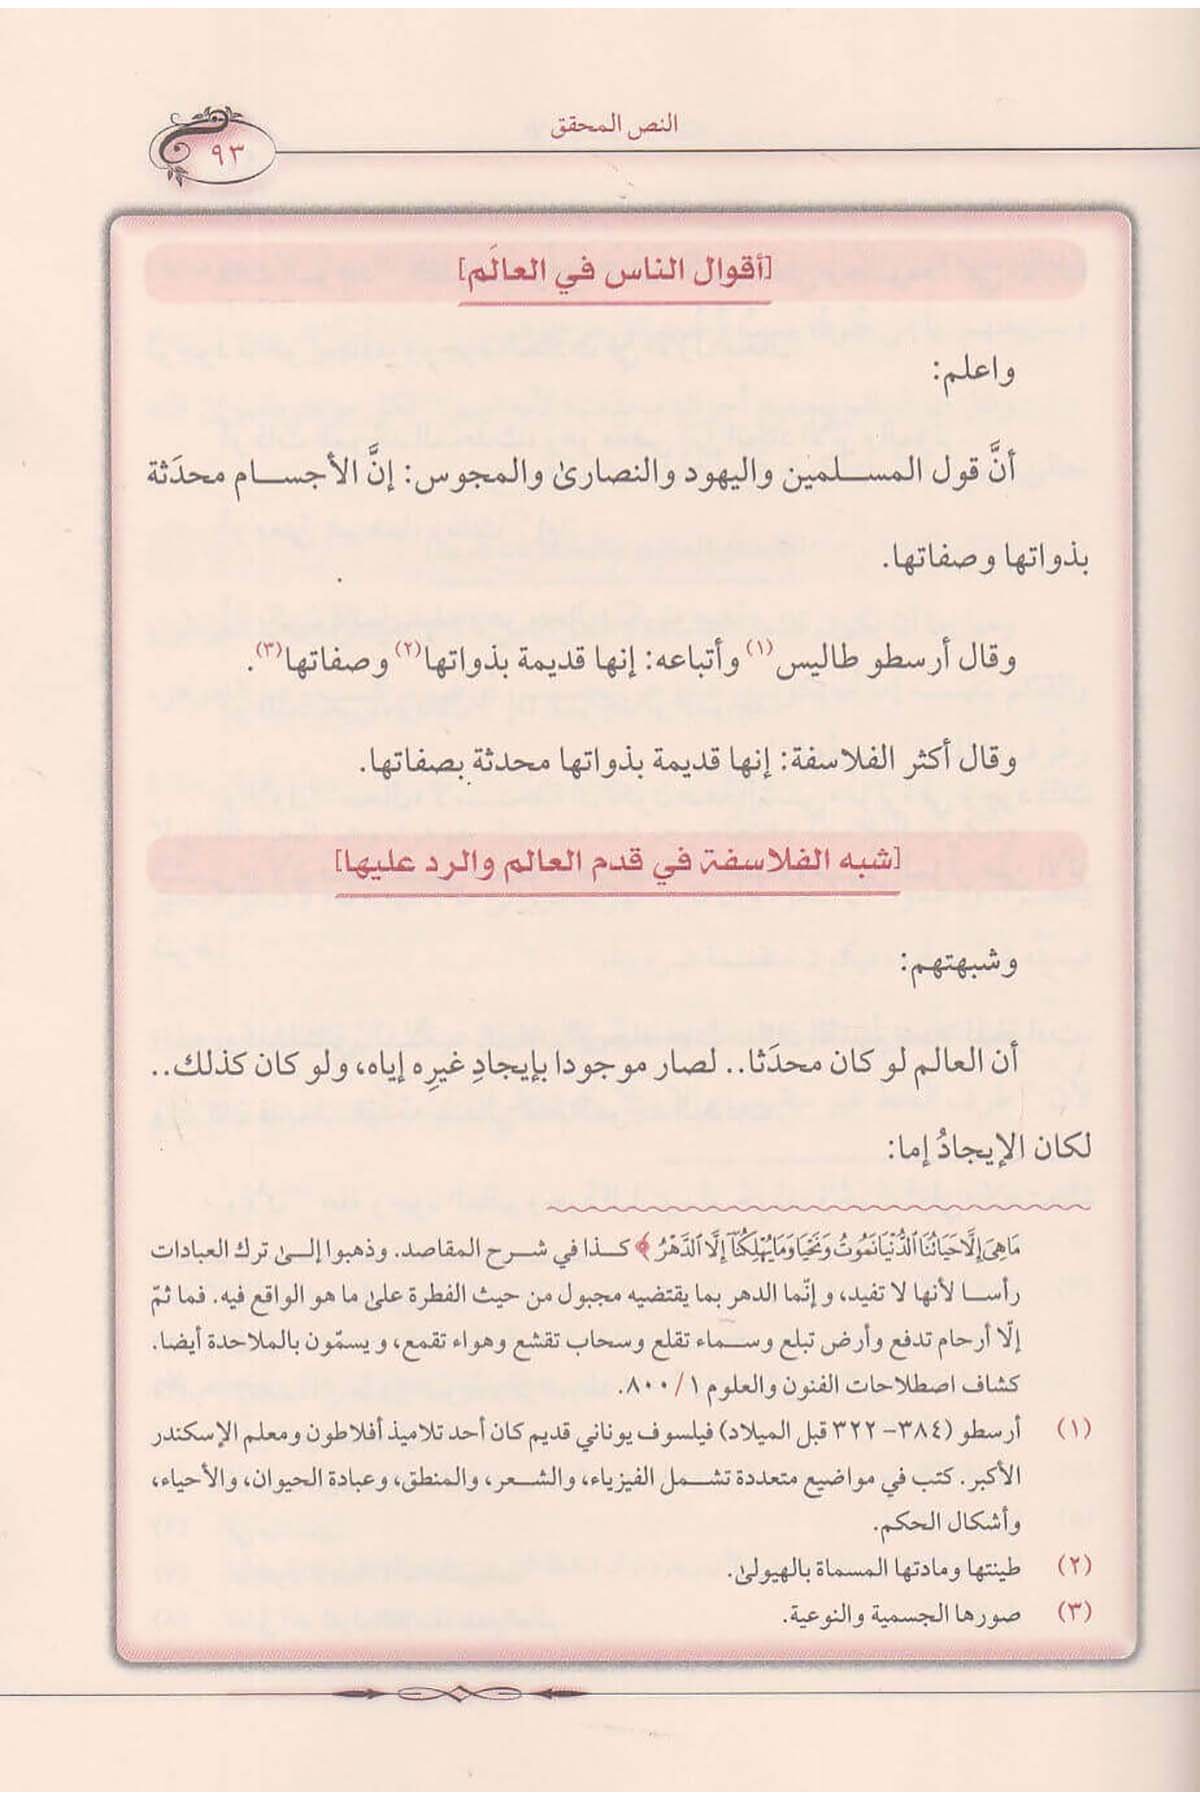 النص المحقق
٩٣
[أقوال الناس في العالَم]
واعلم:
أنَّ قول المسلمين واليهود والنصارىٰ والمجوس: إنَّ الأجسام محدَثة
بذواتها وصفاتها.
وقال أرسطو طاليس(١) وأتباعه: إنها قديمة بذواتها(٢) وصفاتها(٣).
وقال أكثر الفلاسفة: إنها قديمة بذواتها محدثة بصفاتها.
[شبه الفلاسفة في قدم العالم والرد عليها]
وشبهتهم:
أن العالم لو كان محدَثا.. لصار موجودا بإيجادِ غيرِه إياه، ولو كان كذلك..
لكان الإيجادُ إما:
مَا هِىَ إِلَّا حَيَاتُنَا ٱلدُّنْيَا نَمُوتُ وَنَحْيَا وَمَا يُهْلِكُنَآ إِلَّا ٱلدَّهْرُ ﴾ كذا في شرح المقاصد. وذهبوا إلىٰ ترك العبادات
رأسا لأنها لا تفيد، وإنّما الدهر بما يقتضيه مجبول من حيث الفطرة علىٰ ما هو الواقع فيه. فما ثمّ
إلّا أرحام تدفع وأرض تبلع وسماء تقلع وسحاب تقشع وهواء تقمع، ويسمّون بالملاحدة أيضا.
كشاف اصطلاحات الفنون والعلوم ١/ ٨٠٠.
(١) أرسطو (٣٨٤- ٣٢٢ قبل الميلاد) فيلسوف يوناني قديم كان أحد تلاميذ أفلاطون ومعلم الإسكندر
الأكبر. كتب في مواضيع متعددة تشمل الفيزياء، والشعر، والمنطق، وعبادة الحيوان، والأحياء،
وأشكال الحكم.
(٢) طينتها ومادتها المسماة بالهيولىٰ.
(٣) صورها الجسمية والنوعية.